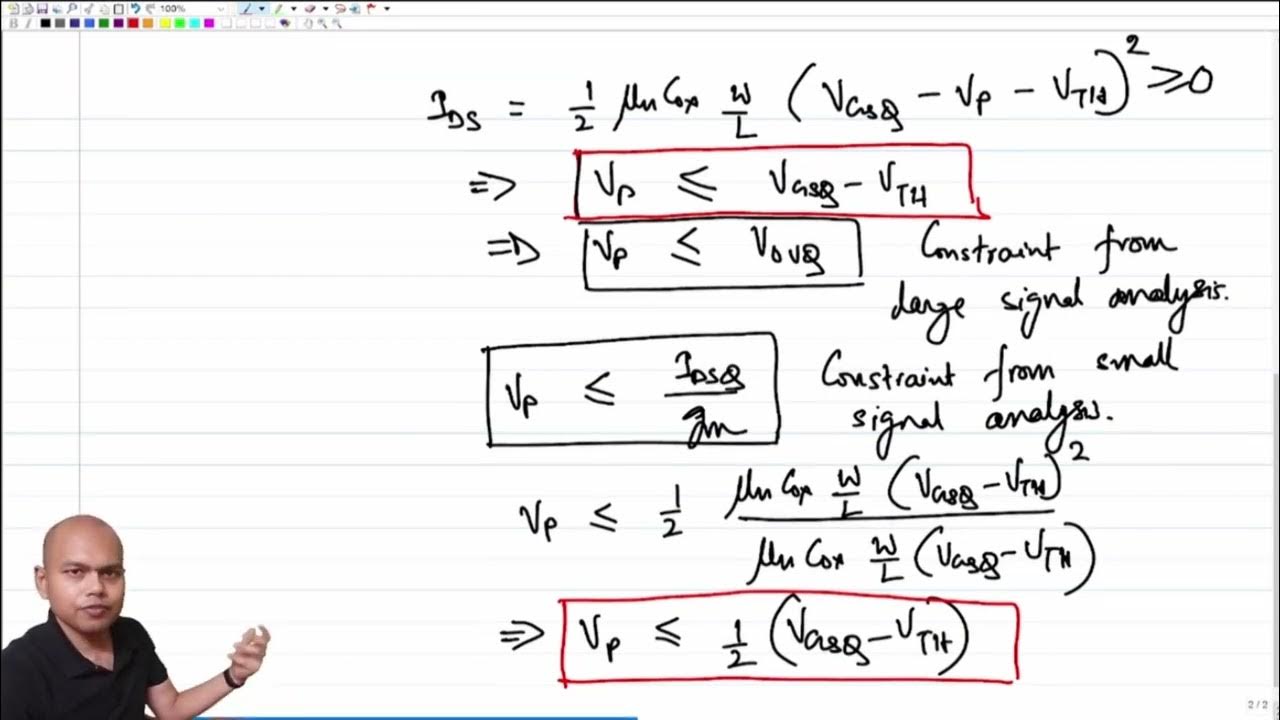 100%
I_DS = 1/2 μn Cox W/L (V_GSQ - V_P - V_TH)^2 ≥ 0
⇒ V_P ≤ V_GSQ - V_TH
⇒ V_P ≤ V_OVQ Constraint from
large signal analysis.
V_P ≤ I_DSQ/gm Constraint from small
signal analysis.
V_P ≤ 1/2 μn Cox W/L (V_GSQ - V_TH)^2 / μn Cox W/L (V_GSQ - V_TH)
⇒ V_P ≤ 1/2 (V_GSQ - V_TH)
2 / 2